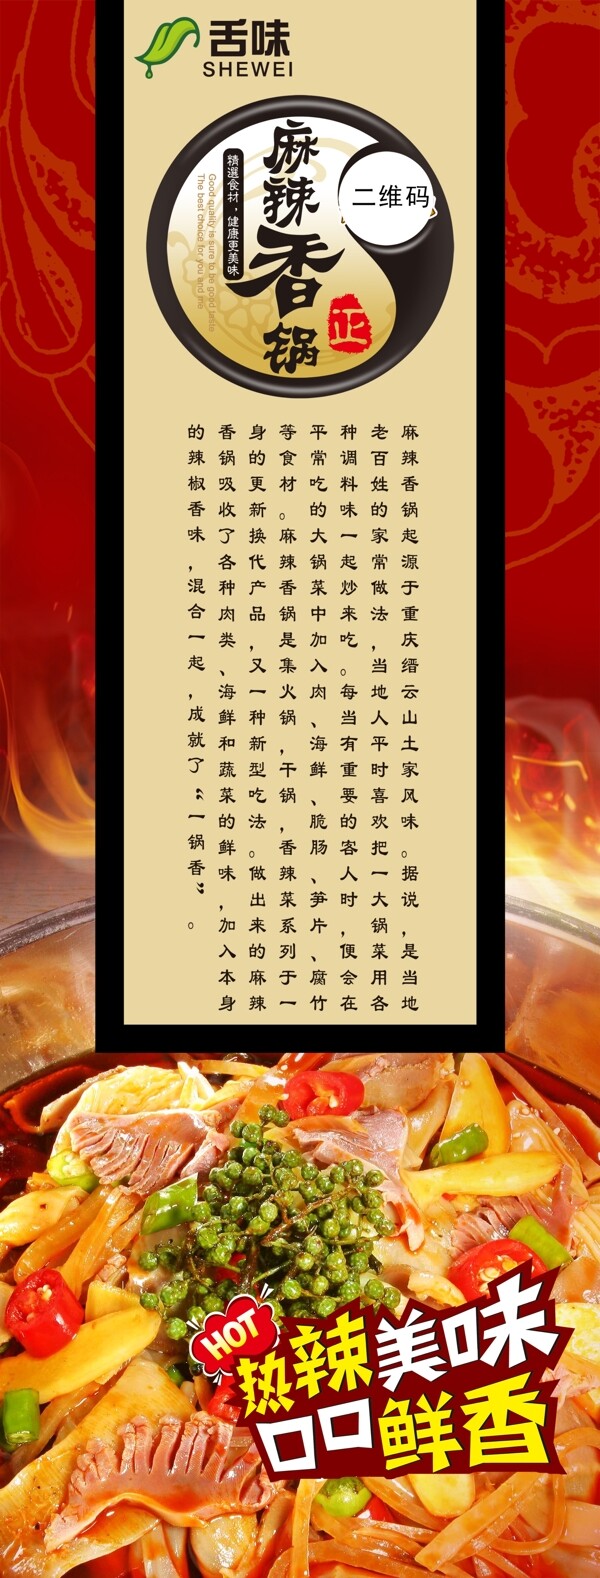 舌味
SHEWEI
麻辣香锅
精選食材，健康更美味
Good quality is sure to be good taste
The best choice for you and me
二维码
正
麻辣香锅起源于重庆缙云山土家风味。据说，是当地
老百姓的家常做法，当地人平时喜欢把一大锅菜用各
种调料味一起炒来吃。每当有重要的客人时，便会在
平常吃的大锅菜中加入肉、海鲜、脆肠、笋片、腐竹
等食材。麻辣香锅是集火锅，干锅，香辣菜系列于一
身的更新换代产品，又一种新型吃法。做出来的麻辣
香锅吸收了各种肉类、海鲜和蔬菜的鲜味，加入本身
的辣椒香味，混合一起，成就了“一锅香”。
HOT
热辣美味
口口鲜香